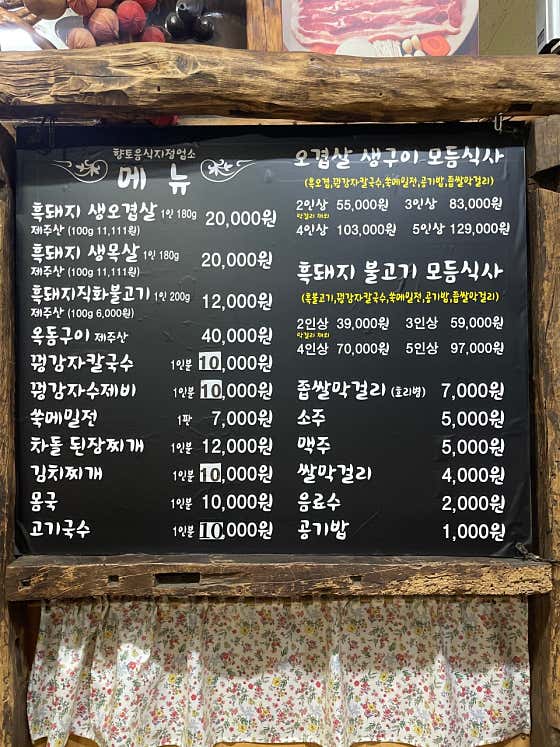 향토음식지정업소
메 뉴
흑돼지 생오겹살 1인 180g 20,000원
제주산 (100g 11,111원)
흑돼지 생목살 1인 180g 20,000원
제주산 (100g 11,111원)
흑돼지직화불고기 1인 200g 12,000원
제주산 (100g 6,000원)
옥동구이 제주산 40,000원
꿩감자칼국수 1인분 10,000원
꿩감자수제비 1인분 10,000원
쑥메밀전 1판 7,000원
차돌 된장찌개 1인분 12,000원
김치찌개 1인분 10,000원
몸국 1인분 10,000원
고기국수 1인분 10,000원
오겹살 생구이 모듬식사
(흑오겹,꿩감자칼국수,쑥메밀전,공기밥,좁쌀막걸리)
2인상 55,000원 3인상 83,000원
막걸리 제외
4인상 103,000원 5인상 129,000원
흑돼지 불고기 모듬식사
(흑불고기,꿩감자칼국수,쑥메밀전,공기밥,좁쌀막걸리)
2인상 39,000원 3인상 59,000원
막걸리 제외
4인상 70,000원 5인상 97,000원
좁쌀막걸리 (호리병) 7,000원
소주 5,000원
맥주 5,000원
쌀막걸리 4,000원
음료수 2,000원
공기밥 1,000원